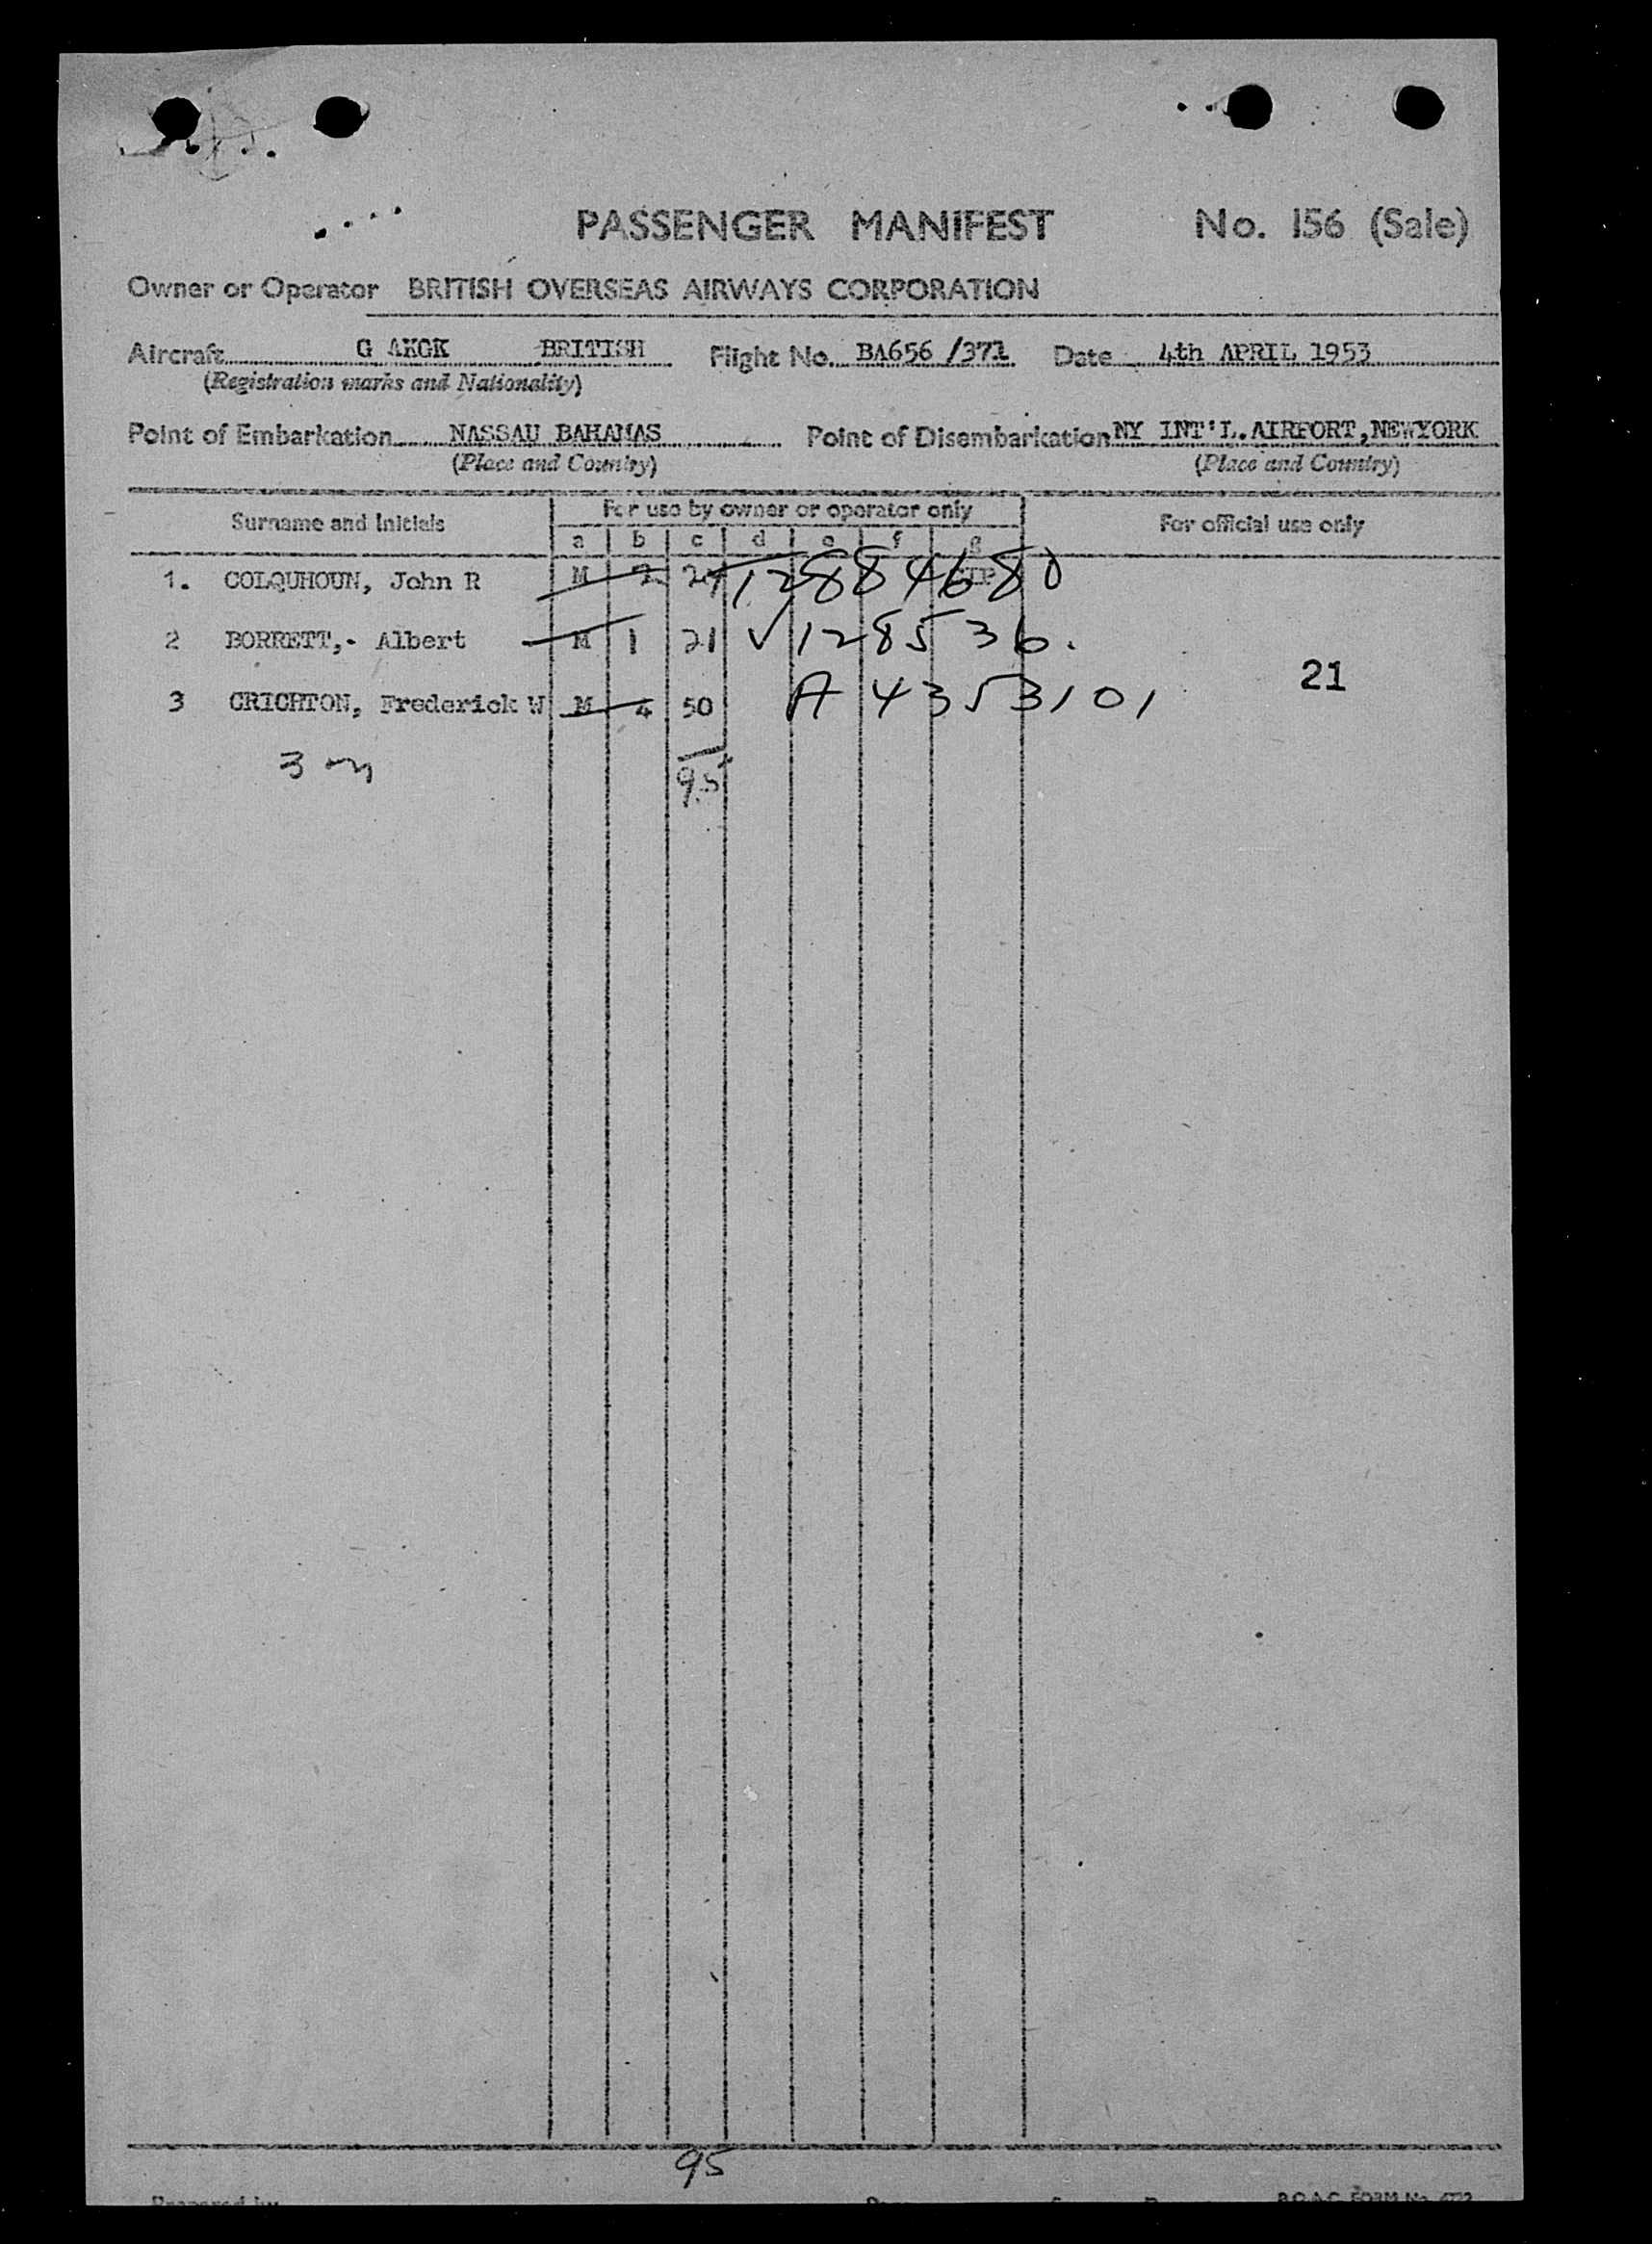 PASSENGER MANIFEST No. 156 (Sale)
Owner or Operator BRITISH OVERSEAS AIRWAYS CORPORATION
Aircraft G AKGK BRITISH Flight No. BA656 /371 Date 4th APRIL 1953
(Registration marks and Nationality)
Point of Embarkation NASSAU BAHAMAS Point of Disembarkation NY INT'L.AIRPORT,NEWYORK
(Place and Country) (Place and Country)
Surname and Initials For use by owner or operator only For official use only
a b c d e f g
1. COLQUHOUN, John R M 2 24 12884680
2 BORRETT,- Albert M 1 21 √ 128536.
3 CRICHTON, Frederick W M 4 50 A 4353101
21
3 m 95
95
Prepared by B.O.A.C. FORM No.